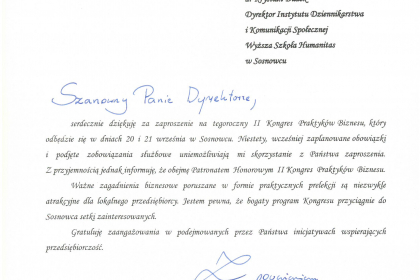 Dyrektor Instytutu Dziennikarstwa
i Komunikacji Społecznej
Wyższa Szkoła Humanitas
w Sosnowcu
Szanowny Panie Dyrektorze,
serdecznie dziękuję za zaproszenie na tegoroczny II Kongres Praktyków Biznesu, który
odbędzie się w dniach 20 i 21 września w Sosnowcu. Niestety, wcześniej zaplanowane obowiązki
i podjęte zobowiązania służbowe uniemożliwiają mi skorzystanie z Państwa zaproszenia.
Z przyjemnością jednak informuję, że obejmę Patronatem Honorowym II Kongres Praktyków Biznesu.
Ważne zagadnienia biznesowe poruszane w formie praktycznych prelekcji są niezwykle
atrakcyjne dla lokalnego przedsiębiorcy. Jestem pewna, że bogaty program Kongresu przyciągnie do
Sosnowca setki zainteresowanych.
Gratuluję zaangażowania w podejmowanych przez Państwa inicjatywach wspierających
przedsiębiorczość.